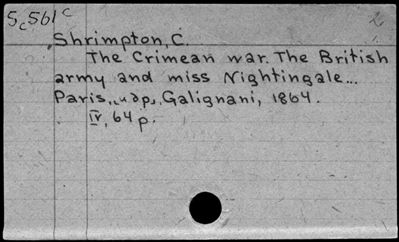 5c561c
2
Shrimpton, C.
The Crimean war. The British
army and miss Nightingale...
Paris, и др., Galignani, 1864.
IV, 64 p.